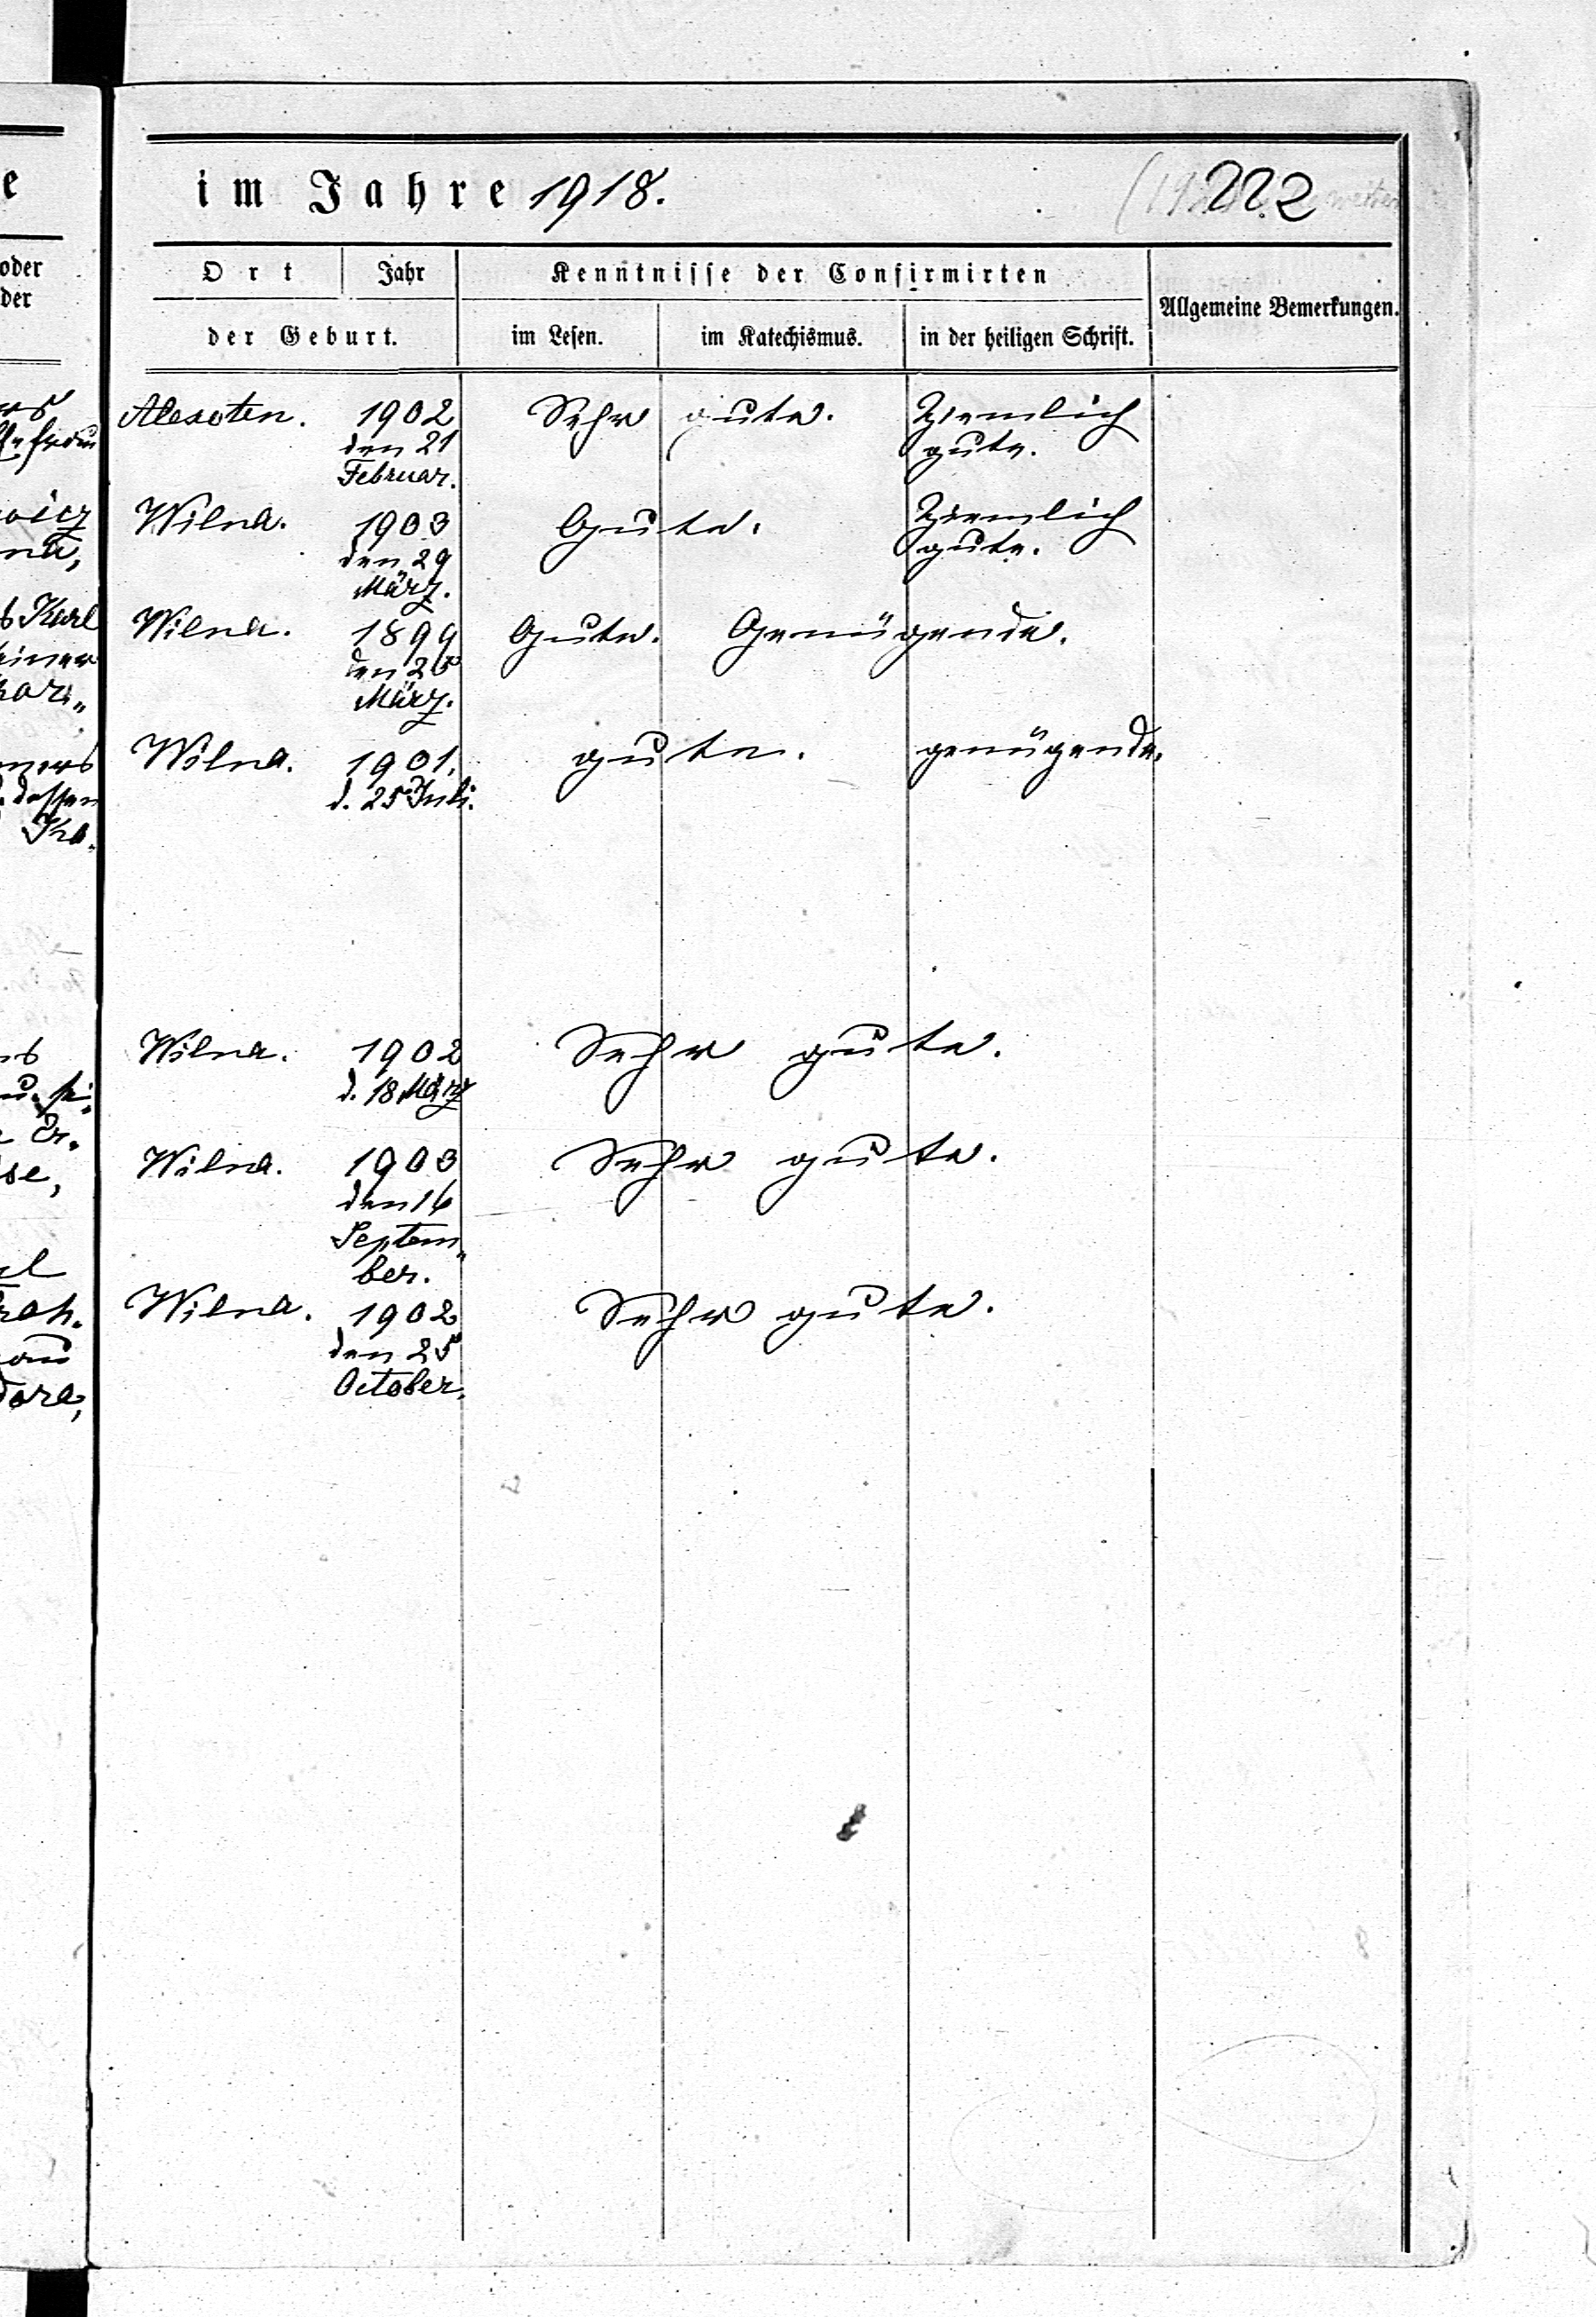 im Jahre 1918.
222
Ort Jahr
der Geburt.
Kenntnisse der Confirmirten
im Lesen. im Katechismus. in der heiligen Schrift.
Allgemeine Bemerkungen.
oder
der
Alexoten. 1902 Sehr gute. Ziemlich
den 21 gute.
Februar.
Wilna. 1903 Gute. Ziemlich
den 29 gute.
März.
Wilna. 1899 Gute. Genügende.
den 25
März.
Wilna. 1901. gute. genügende.
d. 25 Juli.
Wilna. 1902 Sehr gute.
d. 18 März
Wilna. 1903 Sehr gute.
den 16
Septem„
ber.
Wilna. 1902 Sehr gute.
den 25
October.